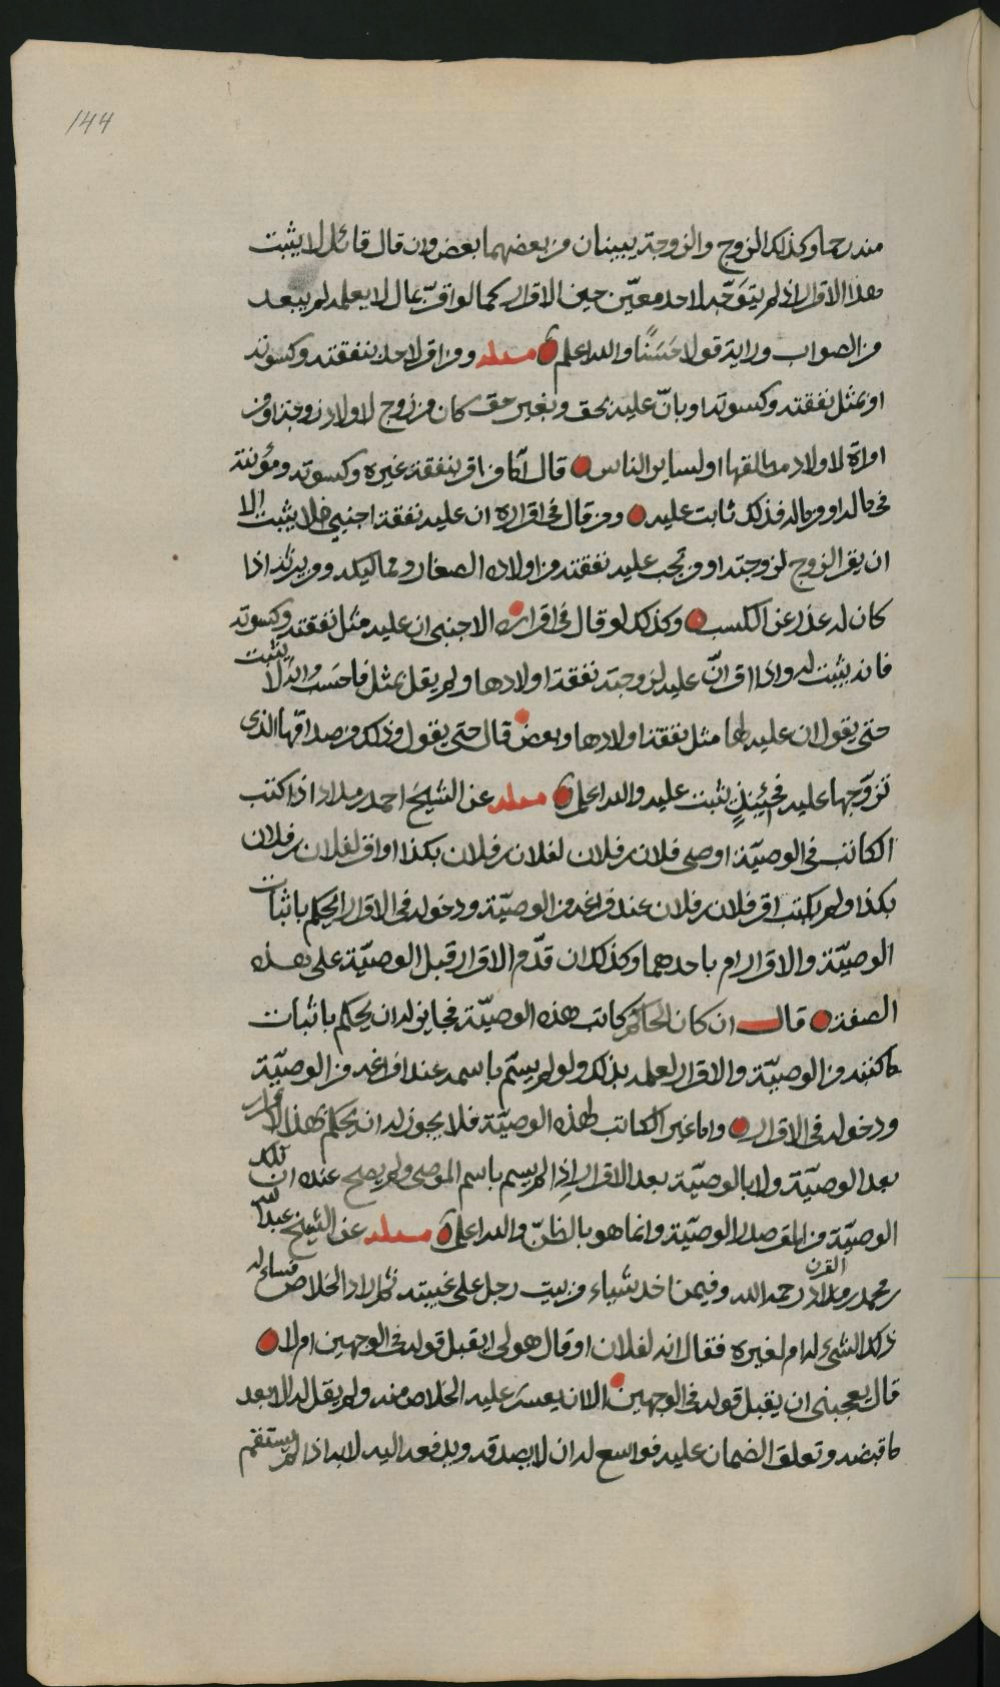 144
منه رحما وكذلك الزوج والزوجة يبينان من بعضهما بعض وان قال قائل لا يثبت
هذا الاقرار اذ لم يتوَجّه لاحد معيّن حين الاقرار كما لو اقرّ بمال لا يعلمه لم يبعد
من الصواب ورايته قولا حَسَنًا والله اعلم مسلة ومن اقر لاحد بنفقته وكسوته
او بمثل نفقته وكسوته او بانّ عليه بحق وبغير حق كان من زوج لاولاد زوجته او من
امراة لاولاد مطالقها او لساير الناس قال اما من اقر بنفقة غيره وكسوته ومؤنته
في ماله او من ماله فذلك ثابت عليه ومن قال في اقراره ان عليه نفقة اجنبي فلا يثبت الا
ان يقر الزوج لزوجته او من تجب عليه نفقته من اولاده الصغار ومماليكه ومن يرثه اذا
كان له عذر عن الكسب وكذلك لو قال في اقراره الاجنبي ان عليه مثل نفقته وكسوته
فانه يثبت له واذا اقر انّ عليه لزوجته نفقة اولادها ولم يقل بمثل فاحسَب انه لا يثبت
حتى يقول ان عليه لها مثل نفقة اولادها وبعض قال حتى يقول وذلك من صداقها الذي
تزوّجها عليه فحينئذٍ يثبت عليه والله اعلم مسلة عن الشيخ احمد بن مداد اذا كتب
الكاتب في الوصيّة اوصى فلان بن فلان لفلان بن فلان بكذا او اقر لفلان بن فلان
بكذا ولم يكتب اقر فلان بن فلان عند فراغه من الوصيّة ودخوله في الاقرار ايحكم باثبات
الوصيّة والاقرار ام باحدهما وكذلك ان قدّم الاقرار قبل الوصيّة على هذه
الصفة قال ان كان الحاكم كاتب هذه الوصيّة فجايز له ان يحكم باثبات
ما كتبه من الوصيّة والاقرار لعلمه بذلك ولو لم يسمّ باسمه عند افراغه من الوصيّة
ودخوله في الاقرار واما غير الكاتب لهذه الوصيّة فلا يجوز له ان يحكم بهذا الاقرار
بعد الوصيّة ولا بالوصيّة بعد الاقرار اذا لم يسم باسم الموصي ولم يصح عنده ان تلك
الوصيّة من المقر صدر الوصيّة وانما هو بالظنّ والله اعلم مسلة عن الشيخ عبد الله
بن محمد بن مداد القرن رحمه الله وفيمن اخذ شياء من بيت رجل على غيبته ثم اراد الخلاص فساءله
ذلك الشيء له ام لغيره فقال انه لفلان او قال هو لي ايقبل قوله في الوجهين ام لا
قال يعجبني ان يقبل قوله في الوجهين الا انه يعسر عليه الخلاص منه ولم يقل له الا بعد
ما قبضه وتعلق الضمان عليه فواسع له ان لا يصدقه ويدفعه اليه لانه اذا لم يستقم